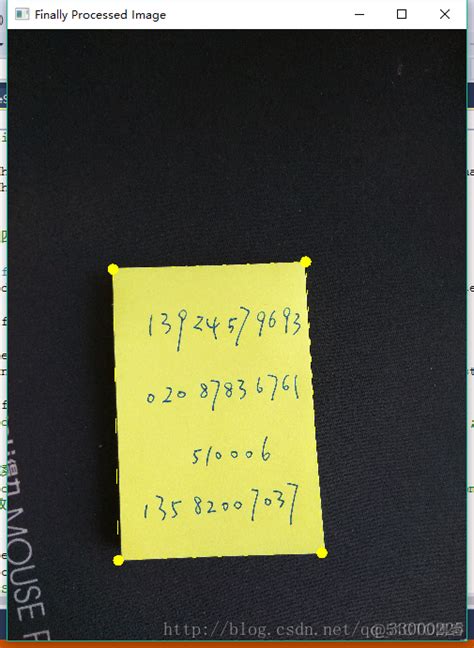 Finally Processed Image
13924579693
020 87836761
510006
13582007037
MOUSE P
http://blog.csdn.net/qq_33000225